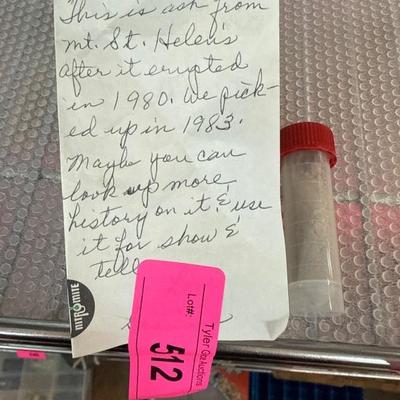 This is ash from
mt. St. Helen's
after it erupted
in 1980. we pick-
ed up in 1983.
Maybe you can
look up more
history on it & use
it for show &
tell
NITROMITE
Tyler Gtz Auctions
Lot#:
512